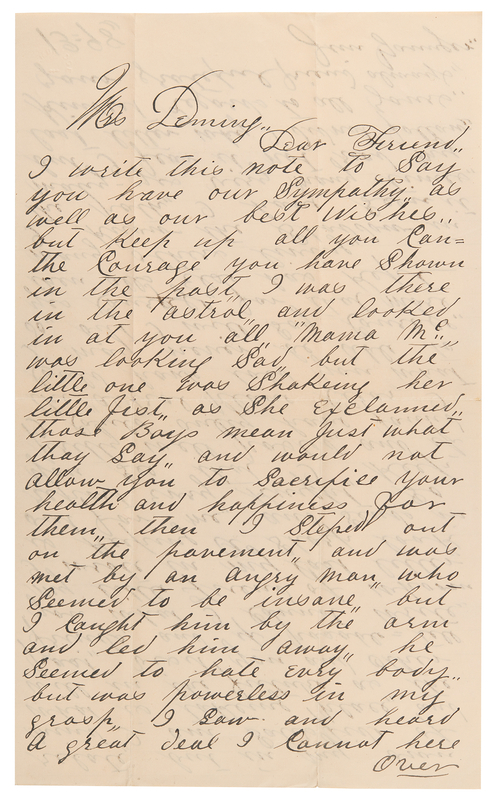 Mrs Deming,,
Dear Freind,,
I write this note to Say
you have our Sympathy,, as
well as our best Wishes,,
but Keep up all you Can=
the Courage you have Shown
in the past,, I was there
in the "astral" and looked
in at you all,, "Mama Mc.,,
was looking Sad but the
little one was Shakeing her
little fist,, as She Exclamned,,
those Boys mean Just what
thay Say,, and would not
allow you to Sacrifise your
health and happiness for
them,, then I Steped out
on the pavement,, and was
met by an angry man,, who
Seemed to be insane,, but
I Caught him by the arm
and led him away,, he
Seemed to hate Evry body,,
but was powerless in my
grasp,, I Saw and heard
a great deal I Cannot here
Over